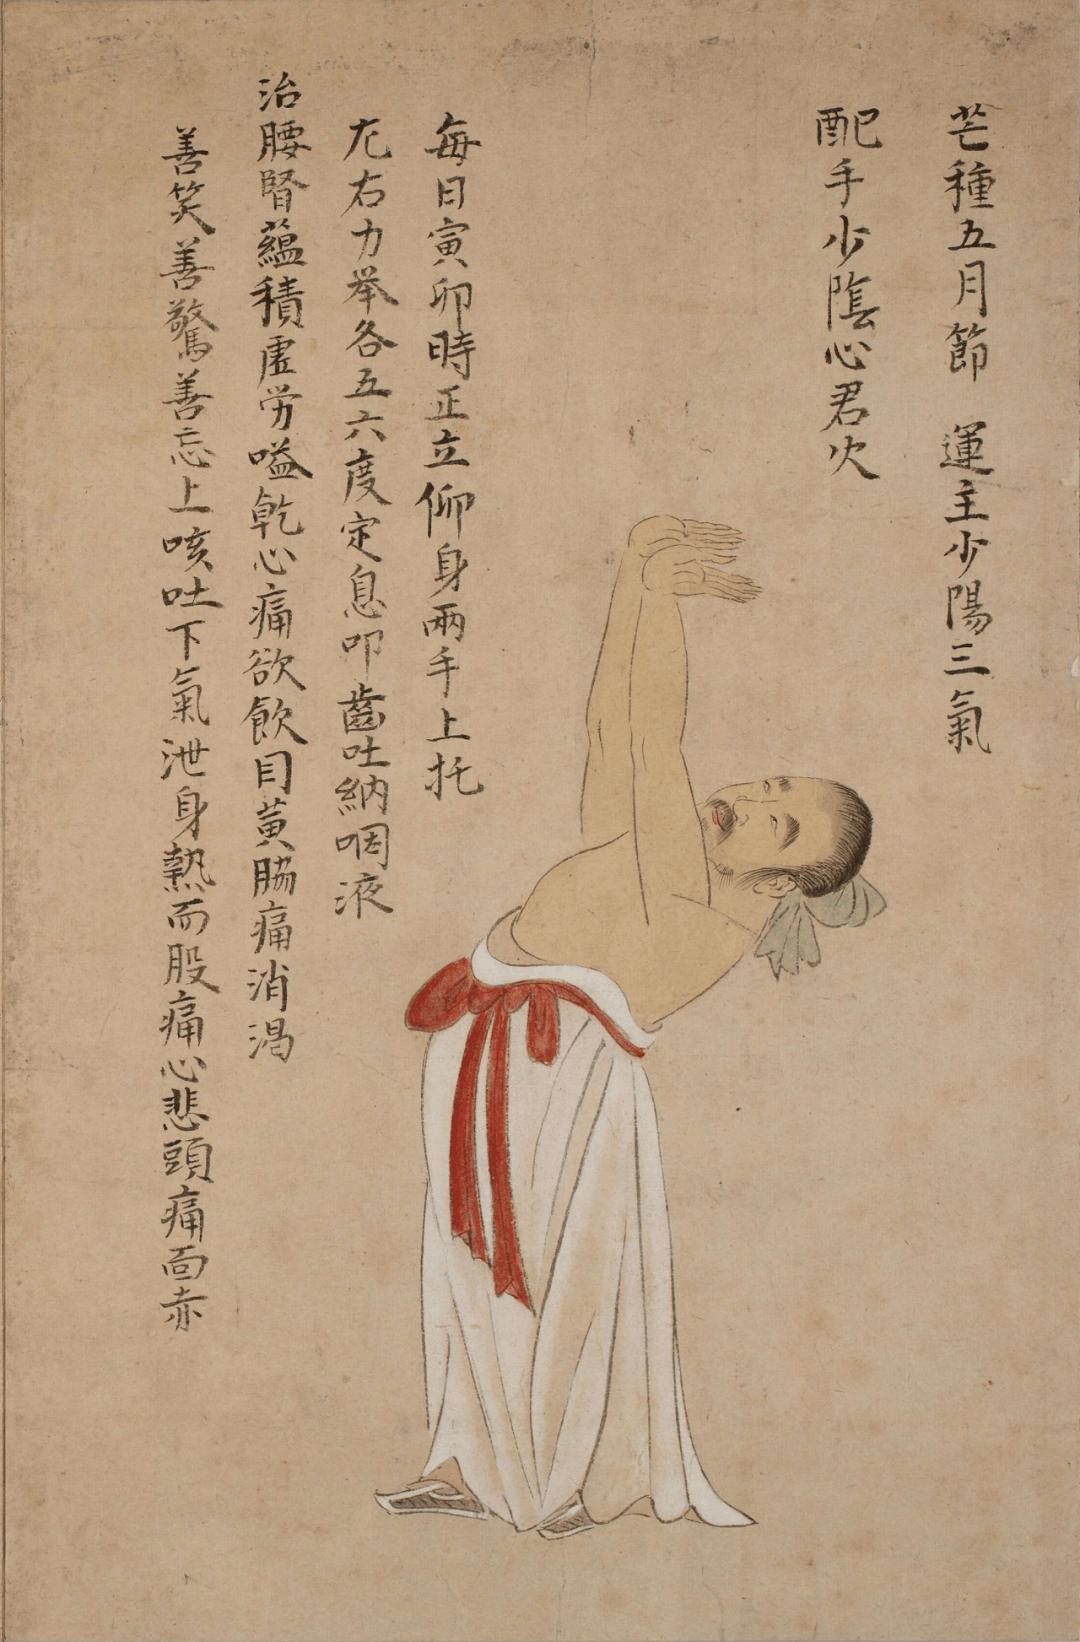 芒種五月節　運主少陽三氣
配手少陰心君火
每日寅卯時正立仰身兩手上托
左右力举各五六度定息叩齒吐納咽液
治腰腎蘊積虛労嗌乾心痛欲飲目黃脇痛消渴
善笑善驚善忘上咳吐下氣泄身熱而股痛心悲頭痛面赤